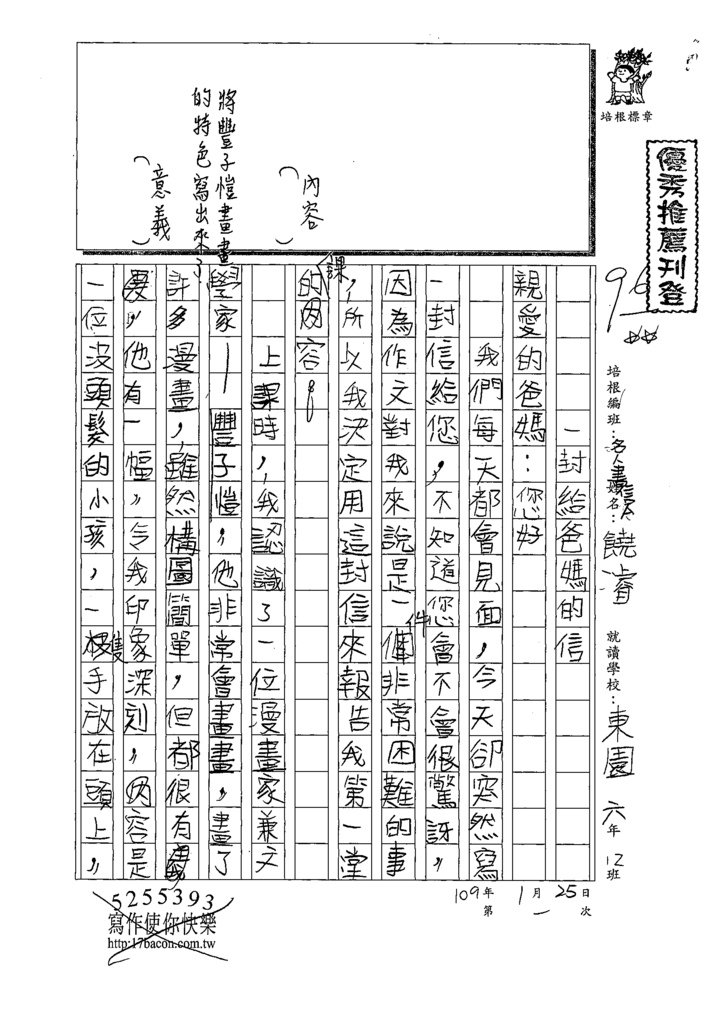 培根標章
優秀推薦刊登
96
培根編班：名人書信
姓名：饒睿
就讀學校：東園 六年 12班
109年 1月 25日
第 一 次
內容
（ ）
將豐子愷畫畫
的特色寫出來了
意義
（ ）
一封給爸媽的信
親愛的爸媽：您好
我們每天都會見面，今天卻突然寫
一封信給您，不知道您會不會很驚訝，
因為作文對我來說是一件非常困難的事
，所以我決定用這封信來報告我第一堂
課的內容。
上課時，我認識了一位漫畫家兼文
學家—豐子愷，他非常會畫畫，畫了
許多漫畫，雖然構圖簡單，但都很有
，他有一幅，令我印象深刻，內容是
一位沒頭髮的小孩，一隻手放在頭上，
5255393
寫作使你快樂
http:17bacon.com.tw